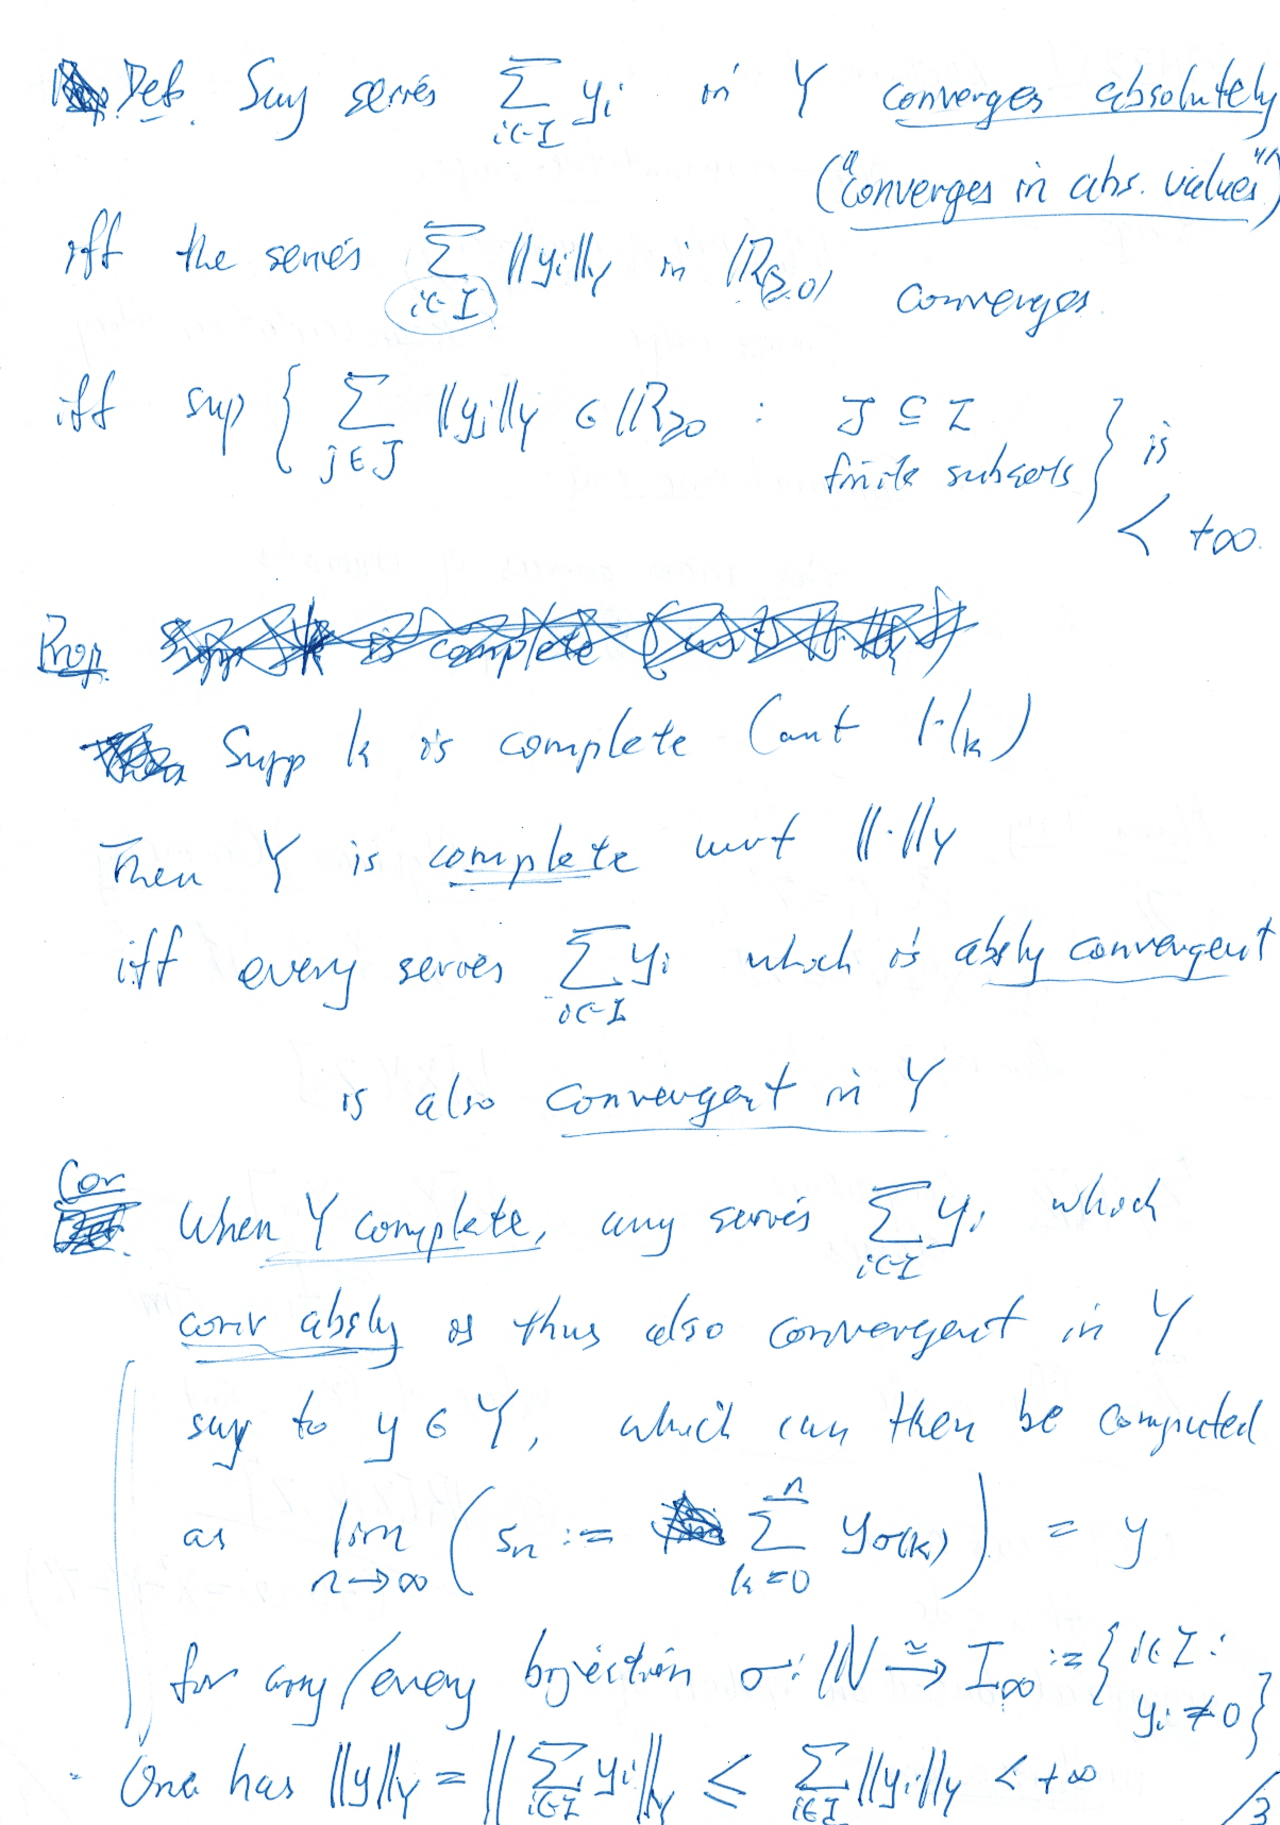 Def. Say series ∑_{i∈I} y_i in Y converges absolutely
("converges in abs. values")
iff the series ∑_{i∈I} ||y_i||_Y in ℝ_{(≥0)} converges.
iff sup { ∑_{j∈J} ||y_j||_Y ∈ ℝ_{≥0} : J ⊆ I finite subsets } is < +∞.
Prop.
Supp k is complete (wrt |·|_k)
Then Y is complete wrt ||·||_Y
iff every series ∑_{i∈I} y_i which is absly convergent
is also convergent in Y
Cor
When Y complete, any series ∑_{i∈I} y_i which
conv absly is thus also convergent in Y
say to y ∈ Y, which can then be computed
as lim_{n→∞} ( s_n := ∑_{k=0}^{n} y_{σ(k)} ) = y
for any/every bijection σ: ℕ ≅→ I_∞ := { i∈I : y_i ≠ 0 }
· One has ||y||_Y = || ∑_{i∈I} y_i ||_Y ≤ ∑_{i∈I} ||y_i||_Y < +∞
/3